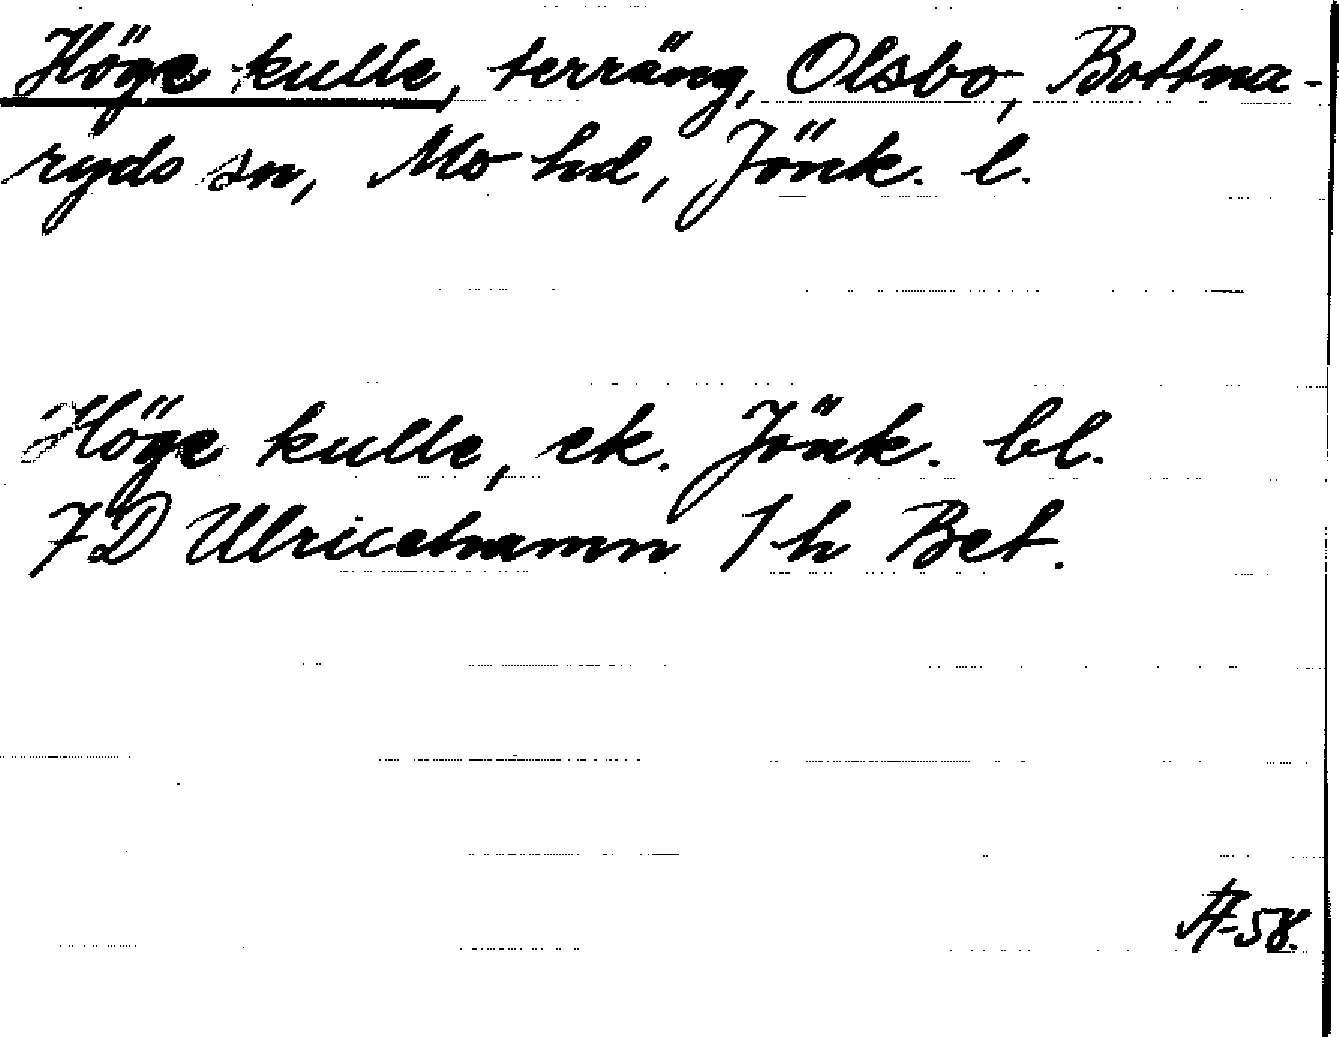 Höge kulle, terräng, Olsbo, Bottna-
ryds sn, Mo hd, Jönk. l.
Höge kulle, ek. Jönk. bl.
7D Ulricehamn 1 h Bet.
-58.